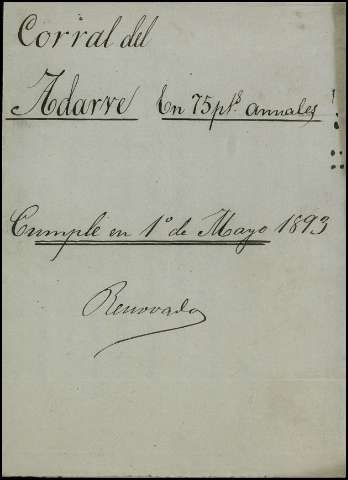 Corral del
Adarve En 75 pts. annales
Cumple en 1º de Mayo 1893
Renovado